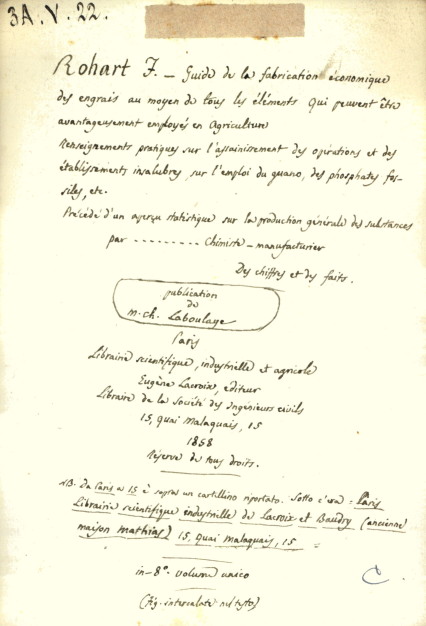 3A.V.22.
Rohart F. _ Guide de la fabrication économique
des engrais au moyen de tous les éléments qui peuvent être
avantageusement employés en Agriculture
Renseignements pratiques sur l'assainissement des opérations et des
établissements insalubres, sur l'emploi du guano, des phosphates fos-
siles, etc.
Précédé d'un aperçu statistique sur la production générale des substances
par ......... Chimiste - manufacturier
Des chiffres et des faits.
publication
de
M. Ch. Laboulaye
Paris
Librairie scientifique, industrielle et agricole
Eugène Lacroix, éditeur
Libraire de la Société des Ingénieurs civils
15, quai Malaquais, 15
1858
Réserve de tous droits.
NB. Da Paris a 15 è sopra un cartellino riportato. Sotto c'era = Paris
Librairie scientifique industrielle de Lacroix et Baudry (ancienne
maison Mathias) 15, quai Malaquais, 15 =
in-8°. volume unico
(Fig. intercalate nel testo)
C